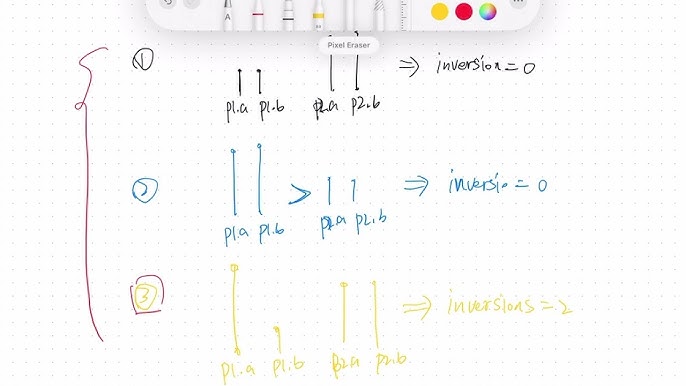 A
Pixel Eraser
① ⇒ inversion = 0
p1.a p1.b p2.a p2.b
② > ⇒ inversio = 0
p1.a p1.b p2.a p2.b
③ ⇒ inversions = 2
p1.a p1.b p2.a p2.b